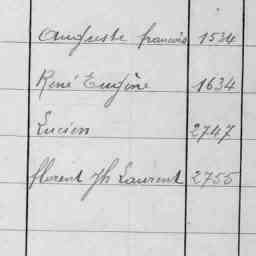 Auguste francois 1534
René Eugène 1634
Lucien 2747
florent Jh Laurent 2755